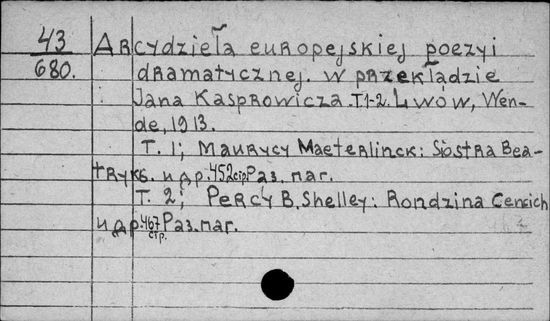 43
680.
Arcydzieła europejskiej poezyi
dramatycznej. w przekładzie
Jana Kasprowicza. T1-2. Lwów, Wen-
de, 1913.
T. 1; Maurycy Maeterlinck: Siostra Bea-
tryks. и др. 452 стр. Раз. паг.
T. 2; Percy B. Shelley: Rondzina Cencich
и др. 467 стр. Раз. паг.